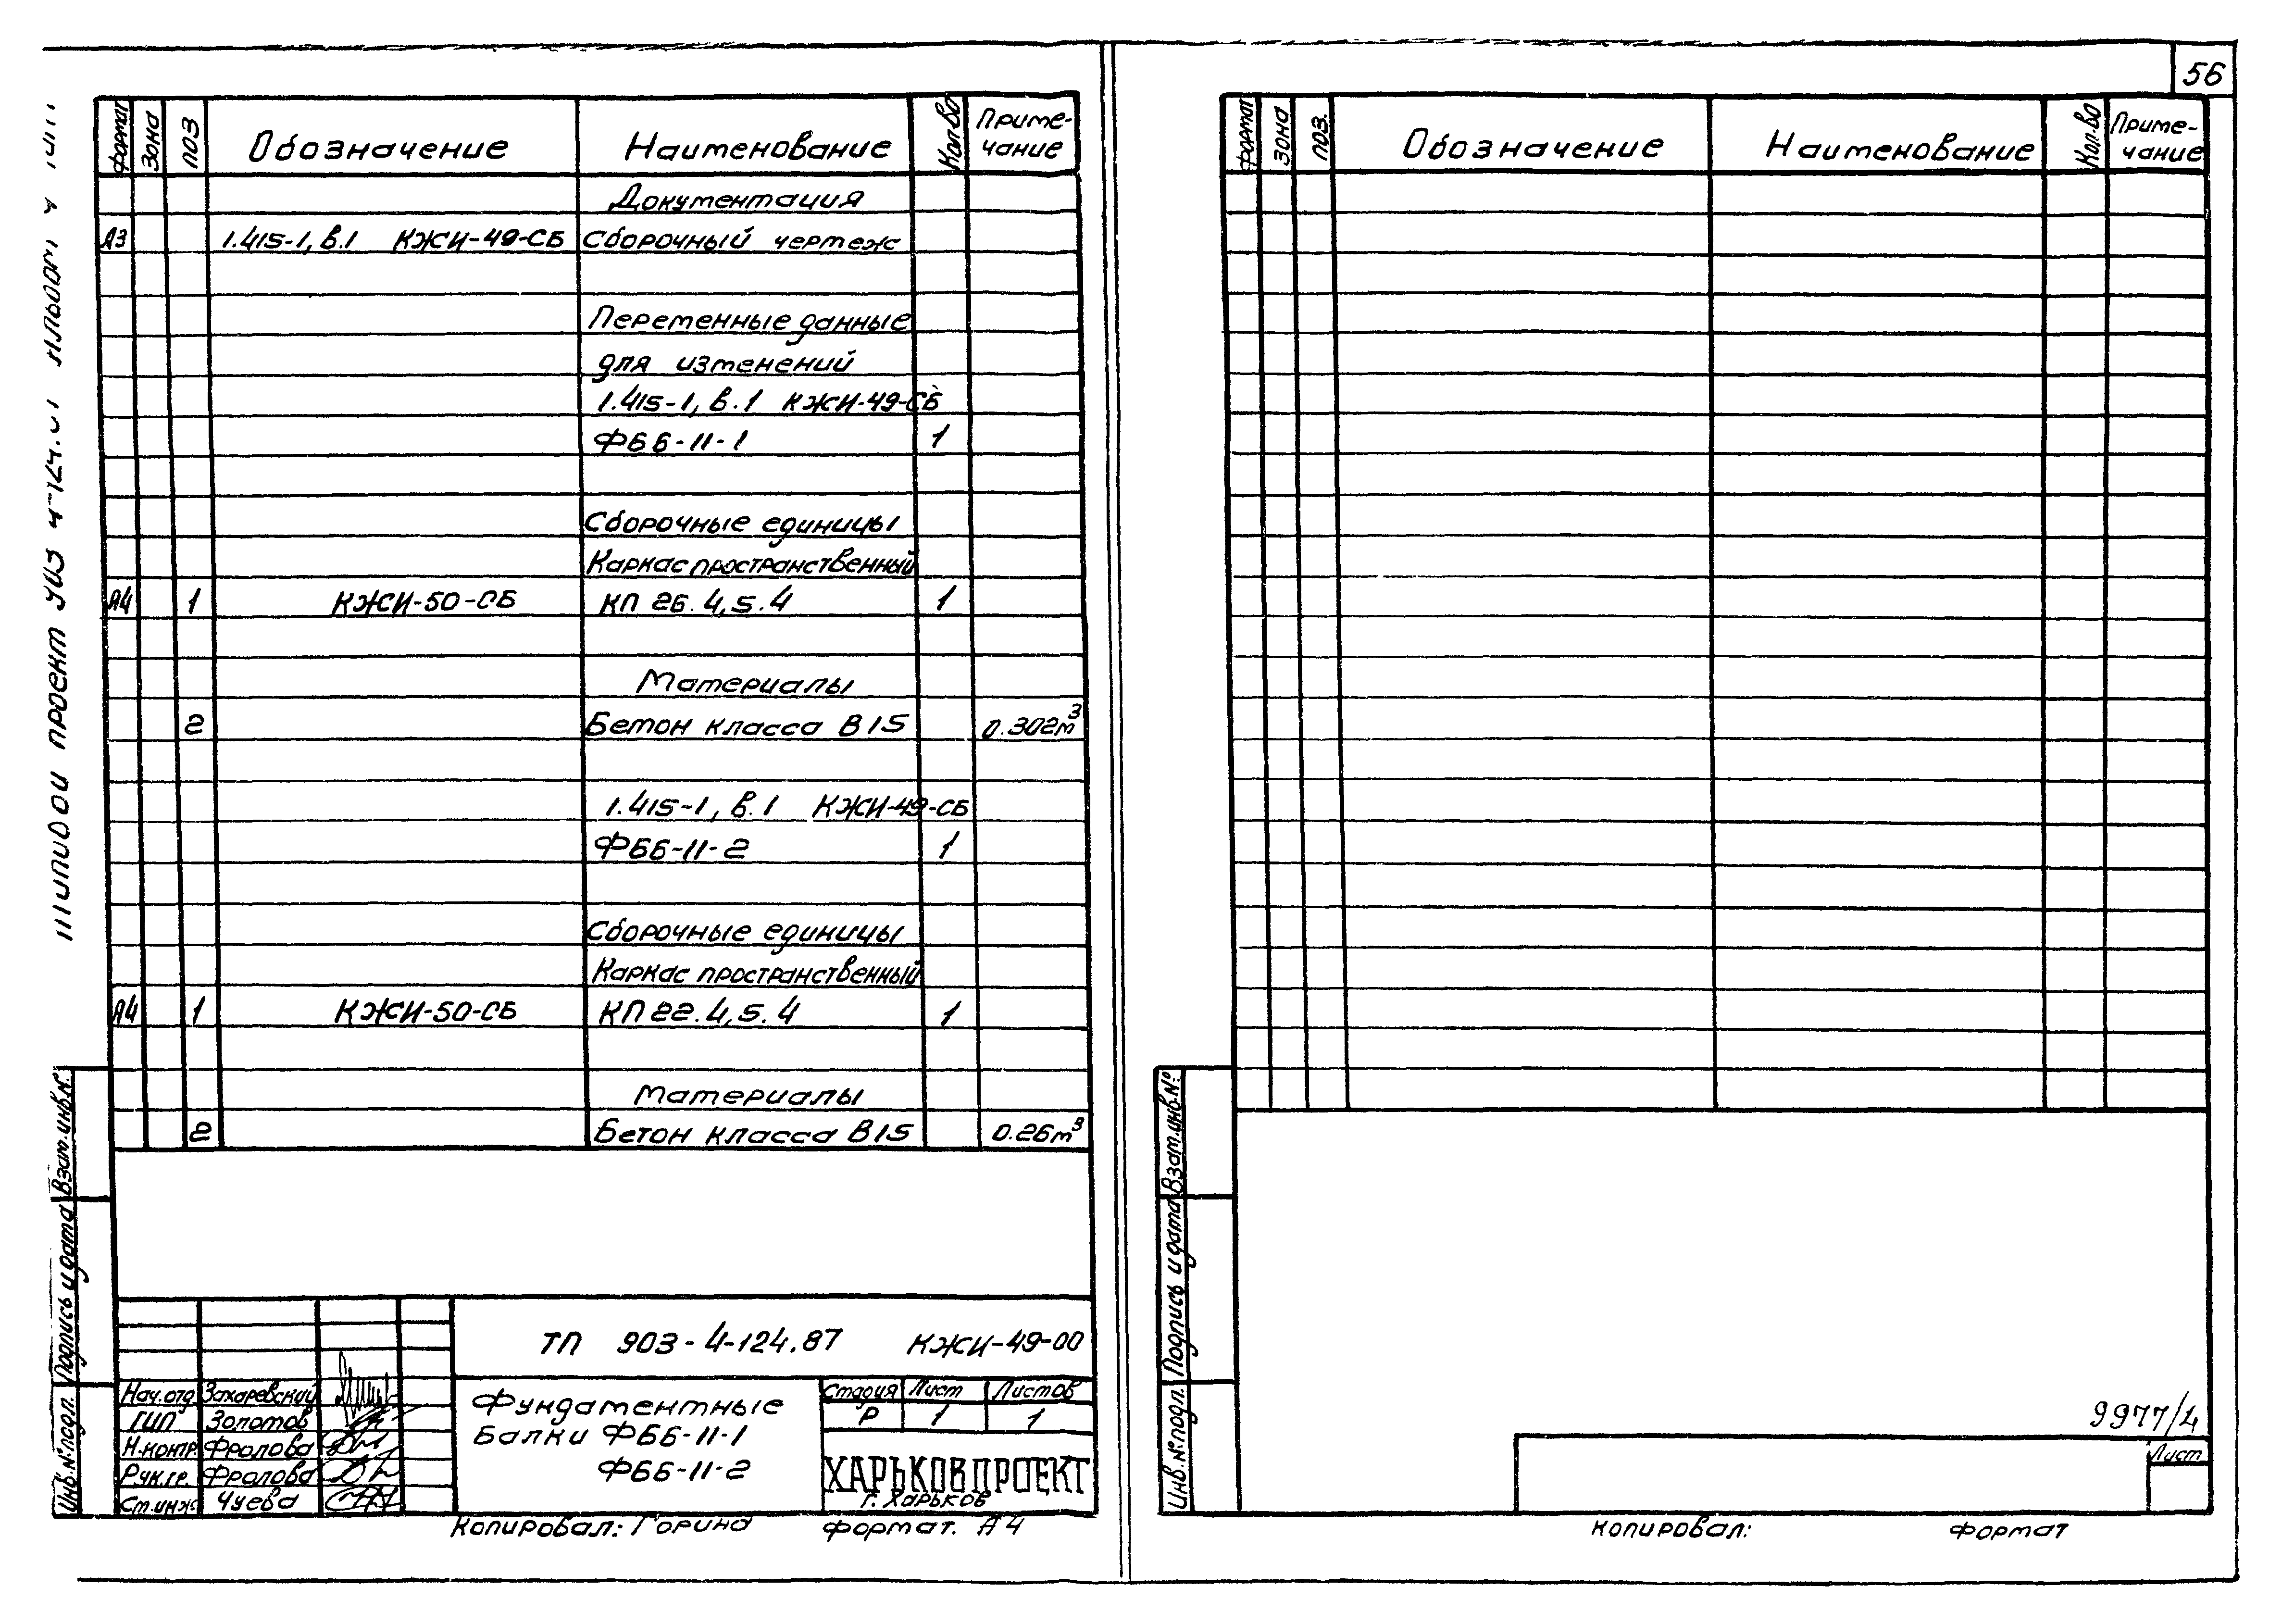 56
Формат Зона Поз Обозначение Наименование Кол-во Приме-
чание
Документация
А3 1.415-1, в.1 КЖИ-49-СБ Сборочный чертеж
Переменные данные
для изменений
1.415-1, в.1 КЖИ-49-СБ
ФБ6-11-1 1
Сборочные единицы
Каркас пространственный
А4 1 КЖИ-50-СБ КП 26.4,5.4 1
Материалы
2 Бетон класса В15 0.302м³
1.415-1, в.1 КЖИ-49-СБ
ФБ6-11-2 1
Сборочные единицы
Каркас пространственный
А4 1 КЖИ-50-СБ КП 22.4,5.4 1
Материалы
2 Бетон класса В15 0.26м³
Типовой проект
Альбом 4
Взам.инв.№
Подпись и дата
Инв.№подл.
ТП 903-4-124.87 КЖИ-49-00
Нач.отд Захаревский
ГИП Золотов
Н.контр Фролова
Рук.гр. Фролова
Ст.инж Чуева
Фундаментные
балки ФБ6-11-1
ФБ6-11-2
Стадия Лист Листов
Р 1 1
ХАРЬКОВПРОЕКТ
г. Харьков
Копировал: Горина формат. А4
Формат Зона Поз. Обозначение Наименование Кол.во Приме-
чание
Взам.инв.№
Подпись и дата
Инв.№подл.
9977/4
Лист
Копировал: формат